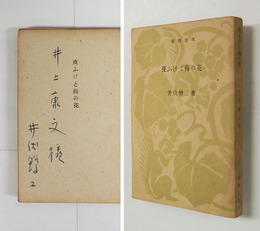 夜ふけと梅の花
井上康文様
井伏鱒二
夜ふけと梅の花
井伏鱒二著